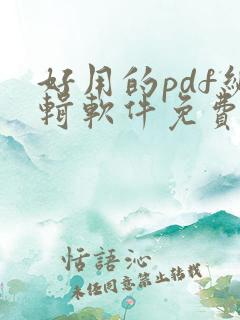 好用的pdf編
輯軟件免費
恬語沁
未经同意禁止转载